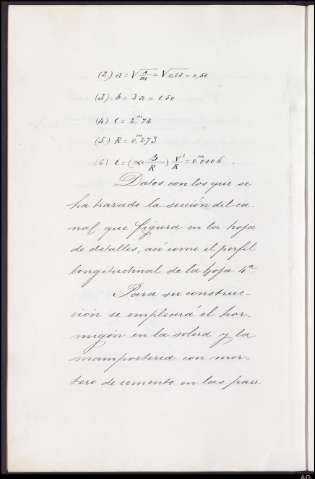 (2) a = √ = √0,25 = 0,50
(3) b = 3 a = 1.50
(4) c = 2.ᵐ74
(5) R = 0.ᵐ273
(6) i = (α + β/R) V²/R = 0.ᵐ0006.
Datos con los que se
ha trazado la sección del ca-
nal que figura en la hoja
de detalles, así como el perfil
longitudinal de la hoja 4ª.
Para su construc-
ción se empleará el hor-
migón en la solera y la
mampostería con mor-
tero de cemento en las pare